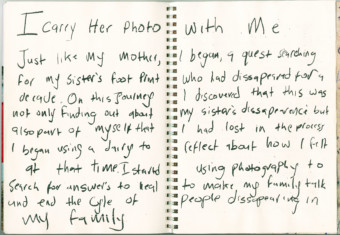 I Carry Her Photo With Me
Just like my mother, I began, a quest searching
for my sister's foot print who had dissapeared for a
decade. On this Journey I discovered that this was
not only finding out about my sister's dissaperence but
also part of myself that I had lost in the process
I began using a dairy to reflect about how I felt
at that time. I started using photography to
Search for answers to heal to make my family talk
and end the cycle of people dissapearing in
my family